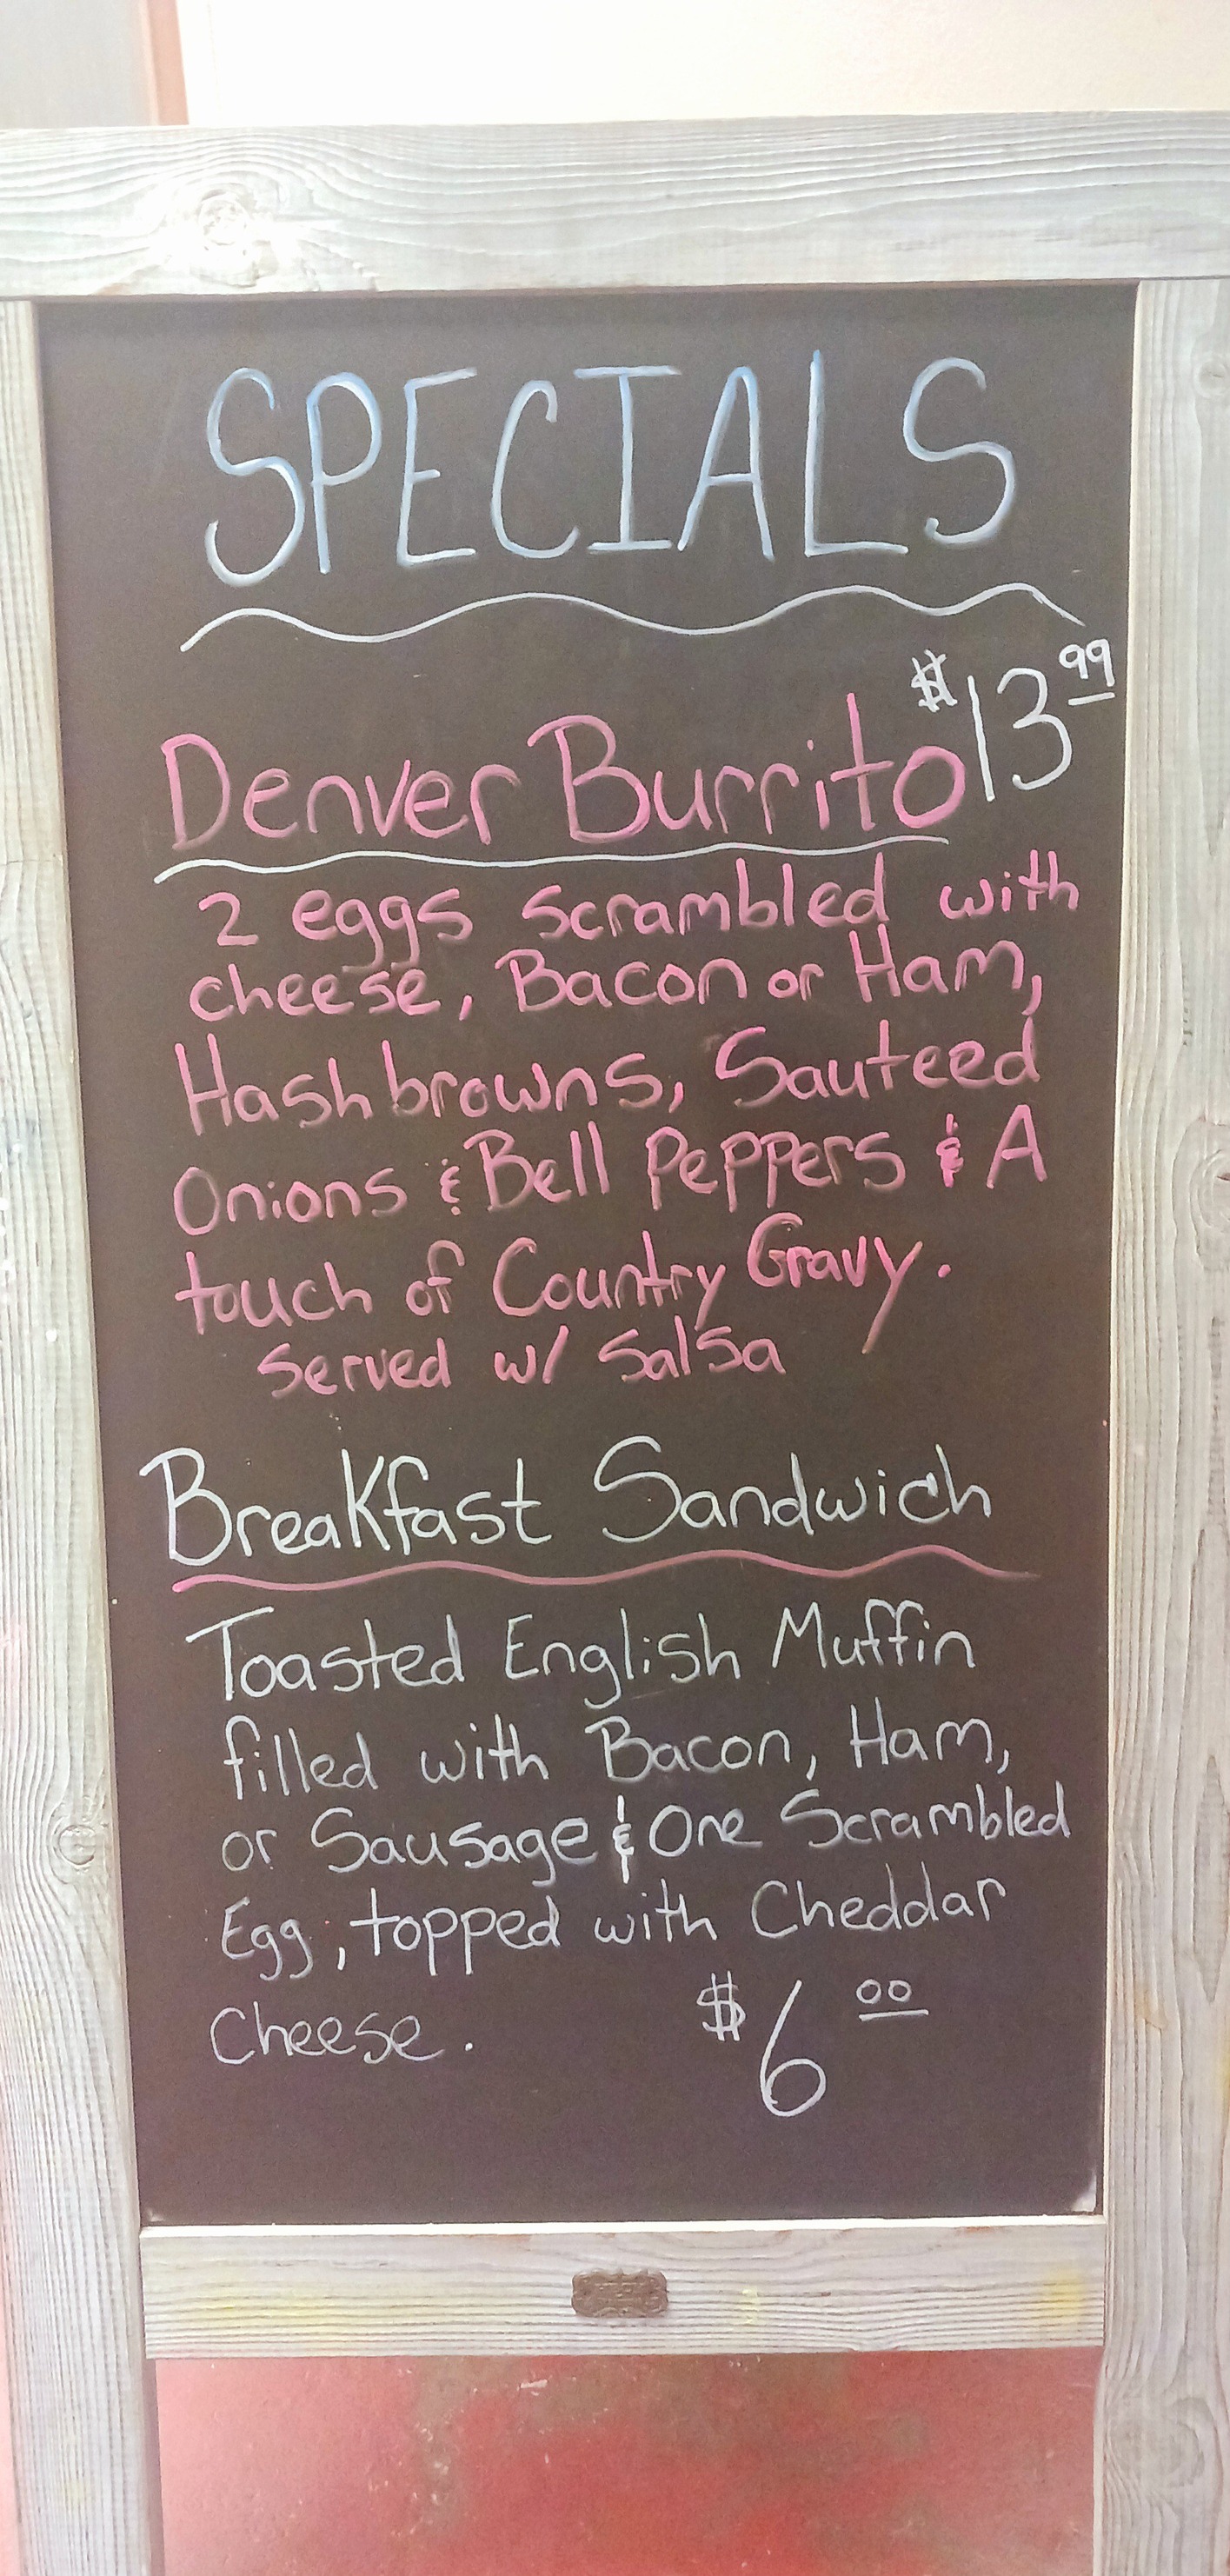 SPECIALS
$13.99
Denver Burrito
2 eggs scrambled with
cheese, Bacon or Ham,
Hashbrowns, Sauteed
Onions & Bell Peppers & A
touch of Country Gravy.
Served w/ Salsa
Breakfast Sandwich
Toasted English Muffin
filled with Bacon, Ham,
or Sausage & One Scrambled
Egg, topped with Cheddar
Cheese. $6 00